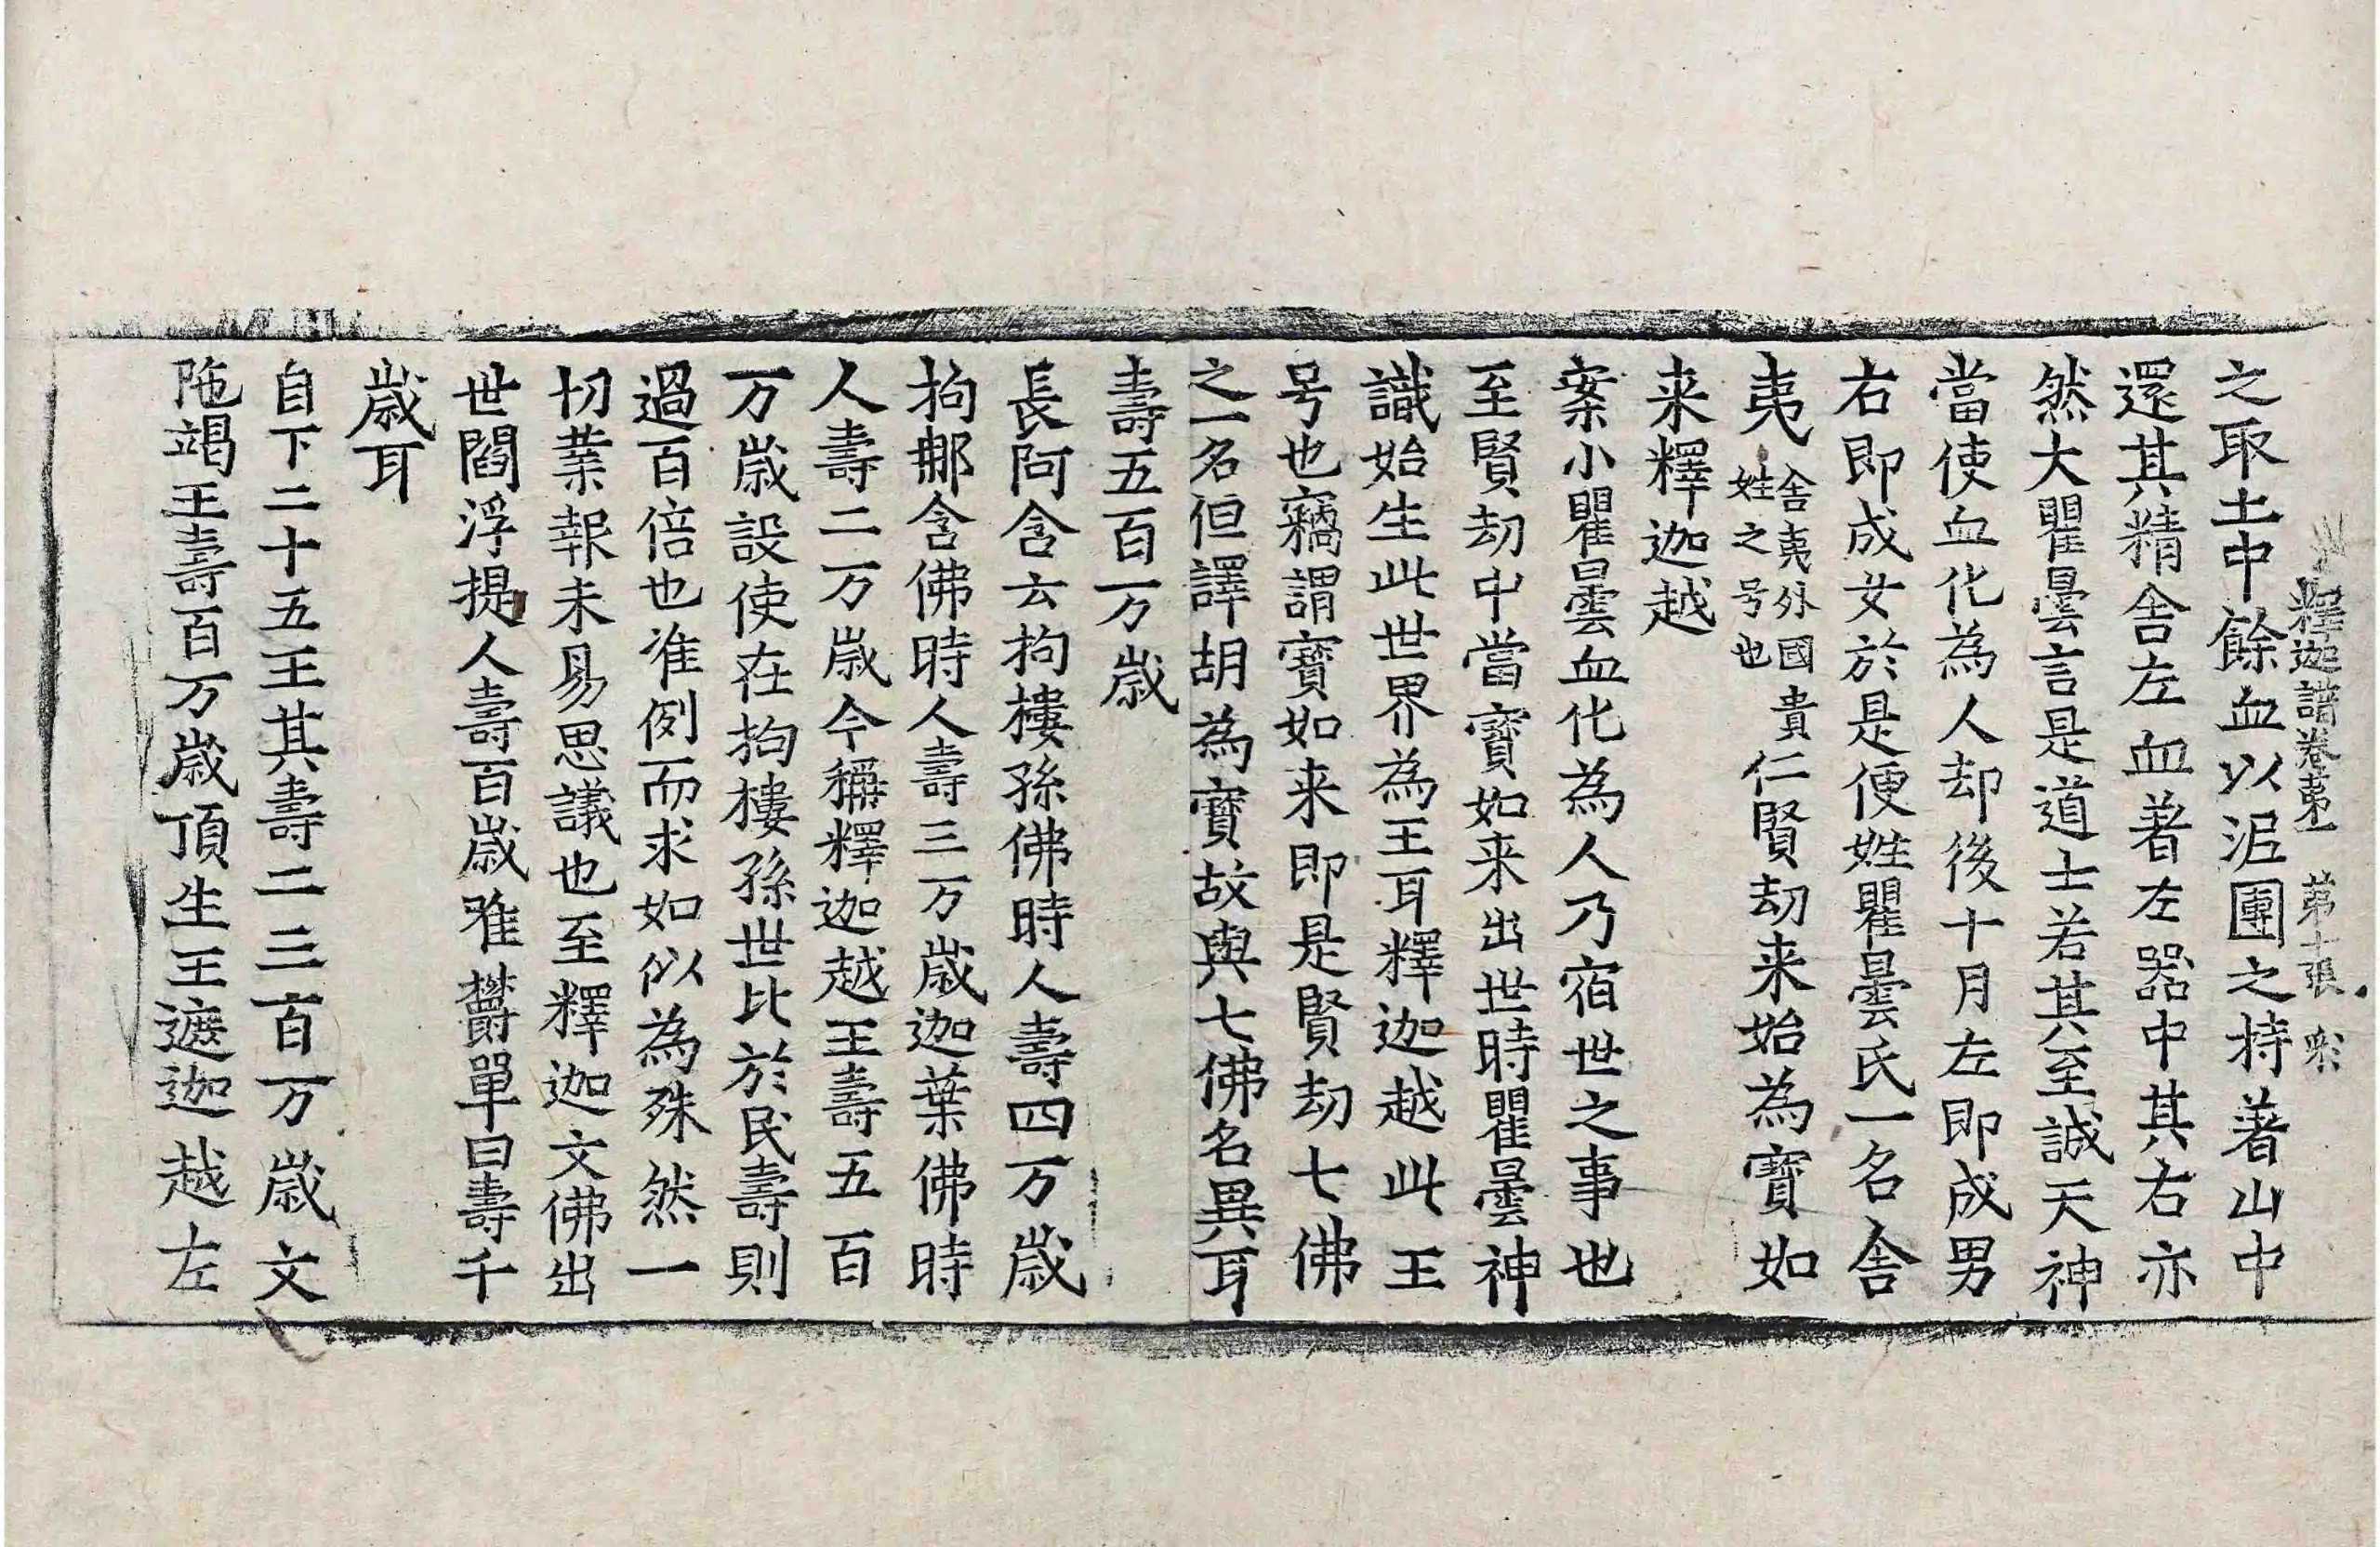 釋迦譜卷第一 第十張 彩
之取土中餘血以泥團之持著山中
還其精舍左血著左器中其右亦
然大瞿曇言是道士若其至誠天神
當使血化為人却後十月左即成男
右即成女於是便姓瞿曇氏一名舍
夷舍夷外國貴姓之号也仁賢劫来始為寶如
来釋迦越
案小瞿曇血化為人乃宿世之事也
至賢劫中當寳如来出世時瞿曇神
識始生此世界為王耳釋迦越此王
号也竊謂寳如来即是賢劫七佛
之一名但譯胡為寳故與七佛名異耳
壽五百万歲
長阿含云拘樓孫佛時人壽四万歲
拘那含佛時人壽三万歲迦葉佛時
人壽二万歲今稱釋迦越王壽五百
万歲設使在拘樓孫世比於民壽則
過百倍也准例而求如似為殊然一
切業報未易思議也至釋迦文佛出
世閻浮提人壽百歲唯欝單曰壽千
歲耳
自下二十五王其壽二三百万歲文
陁竭王壽百万歲頂生王遮迦越左